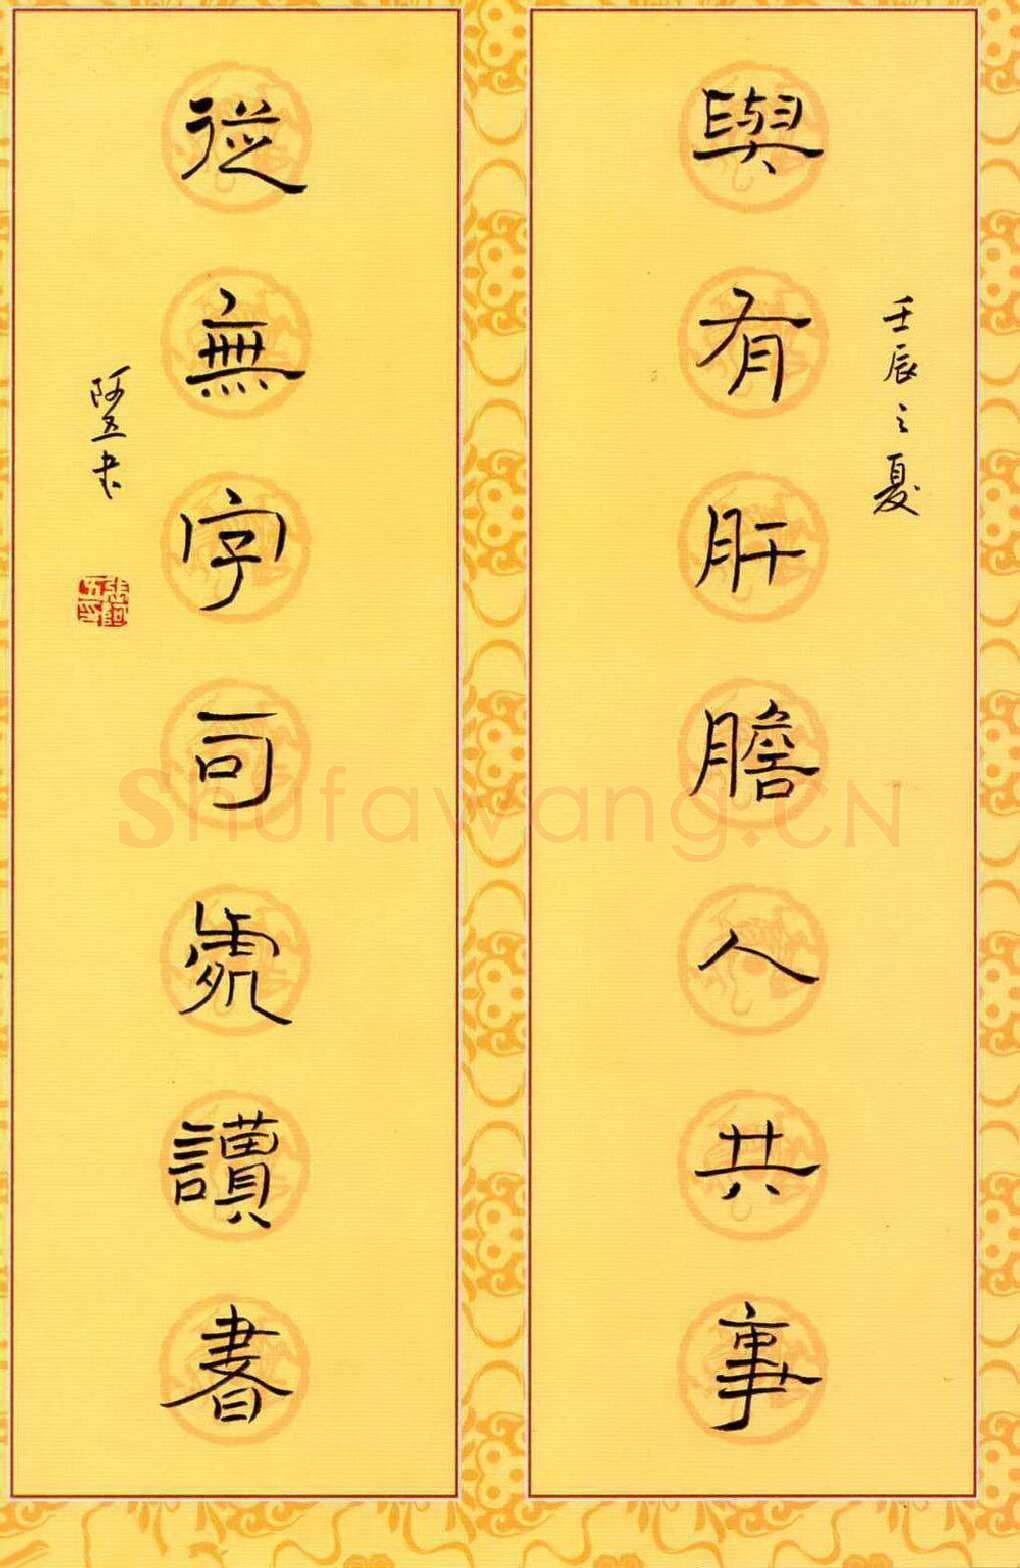 壬辰之夏
與有肝膽人共事
從無字句處讀書
阿五书
張阿五印
Shufawang.CN